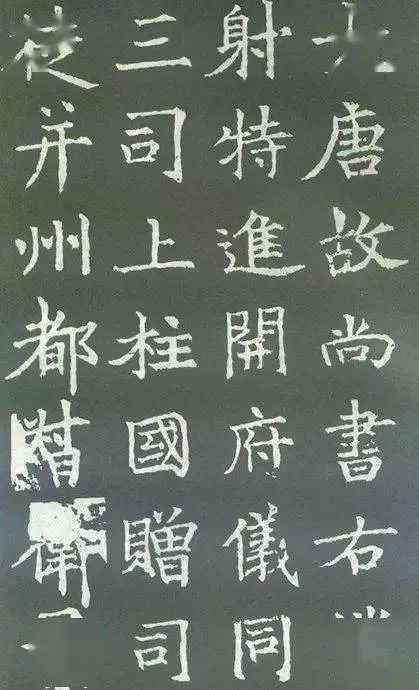 大唐故尚書右
射特進開府儀同
三司上柱國贈司
徒并州都督衛